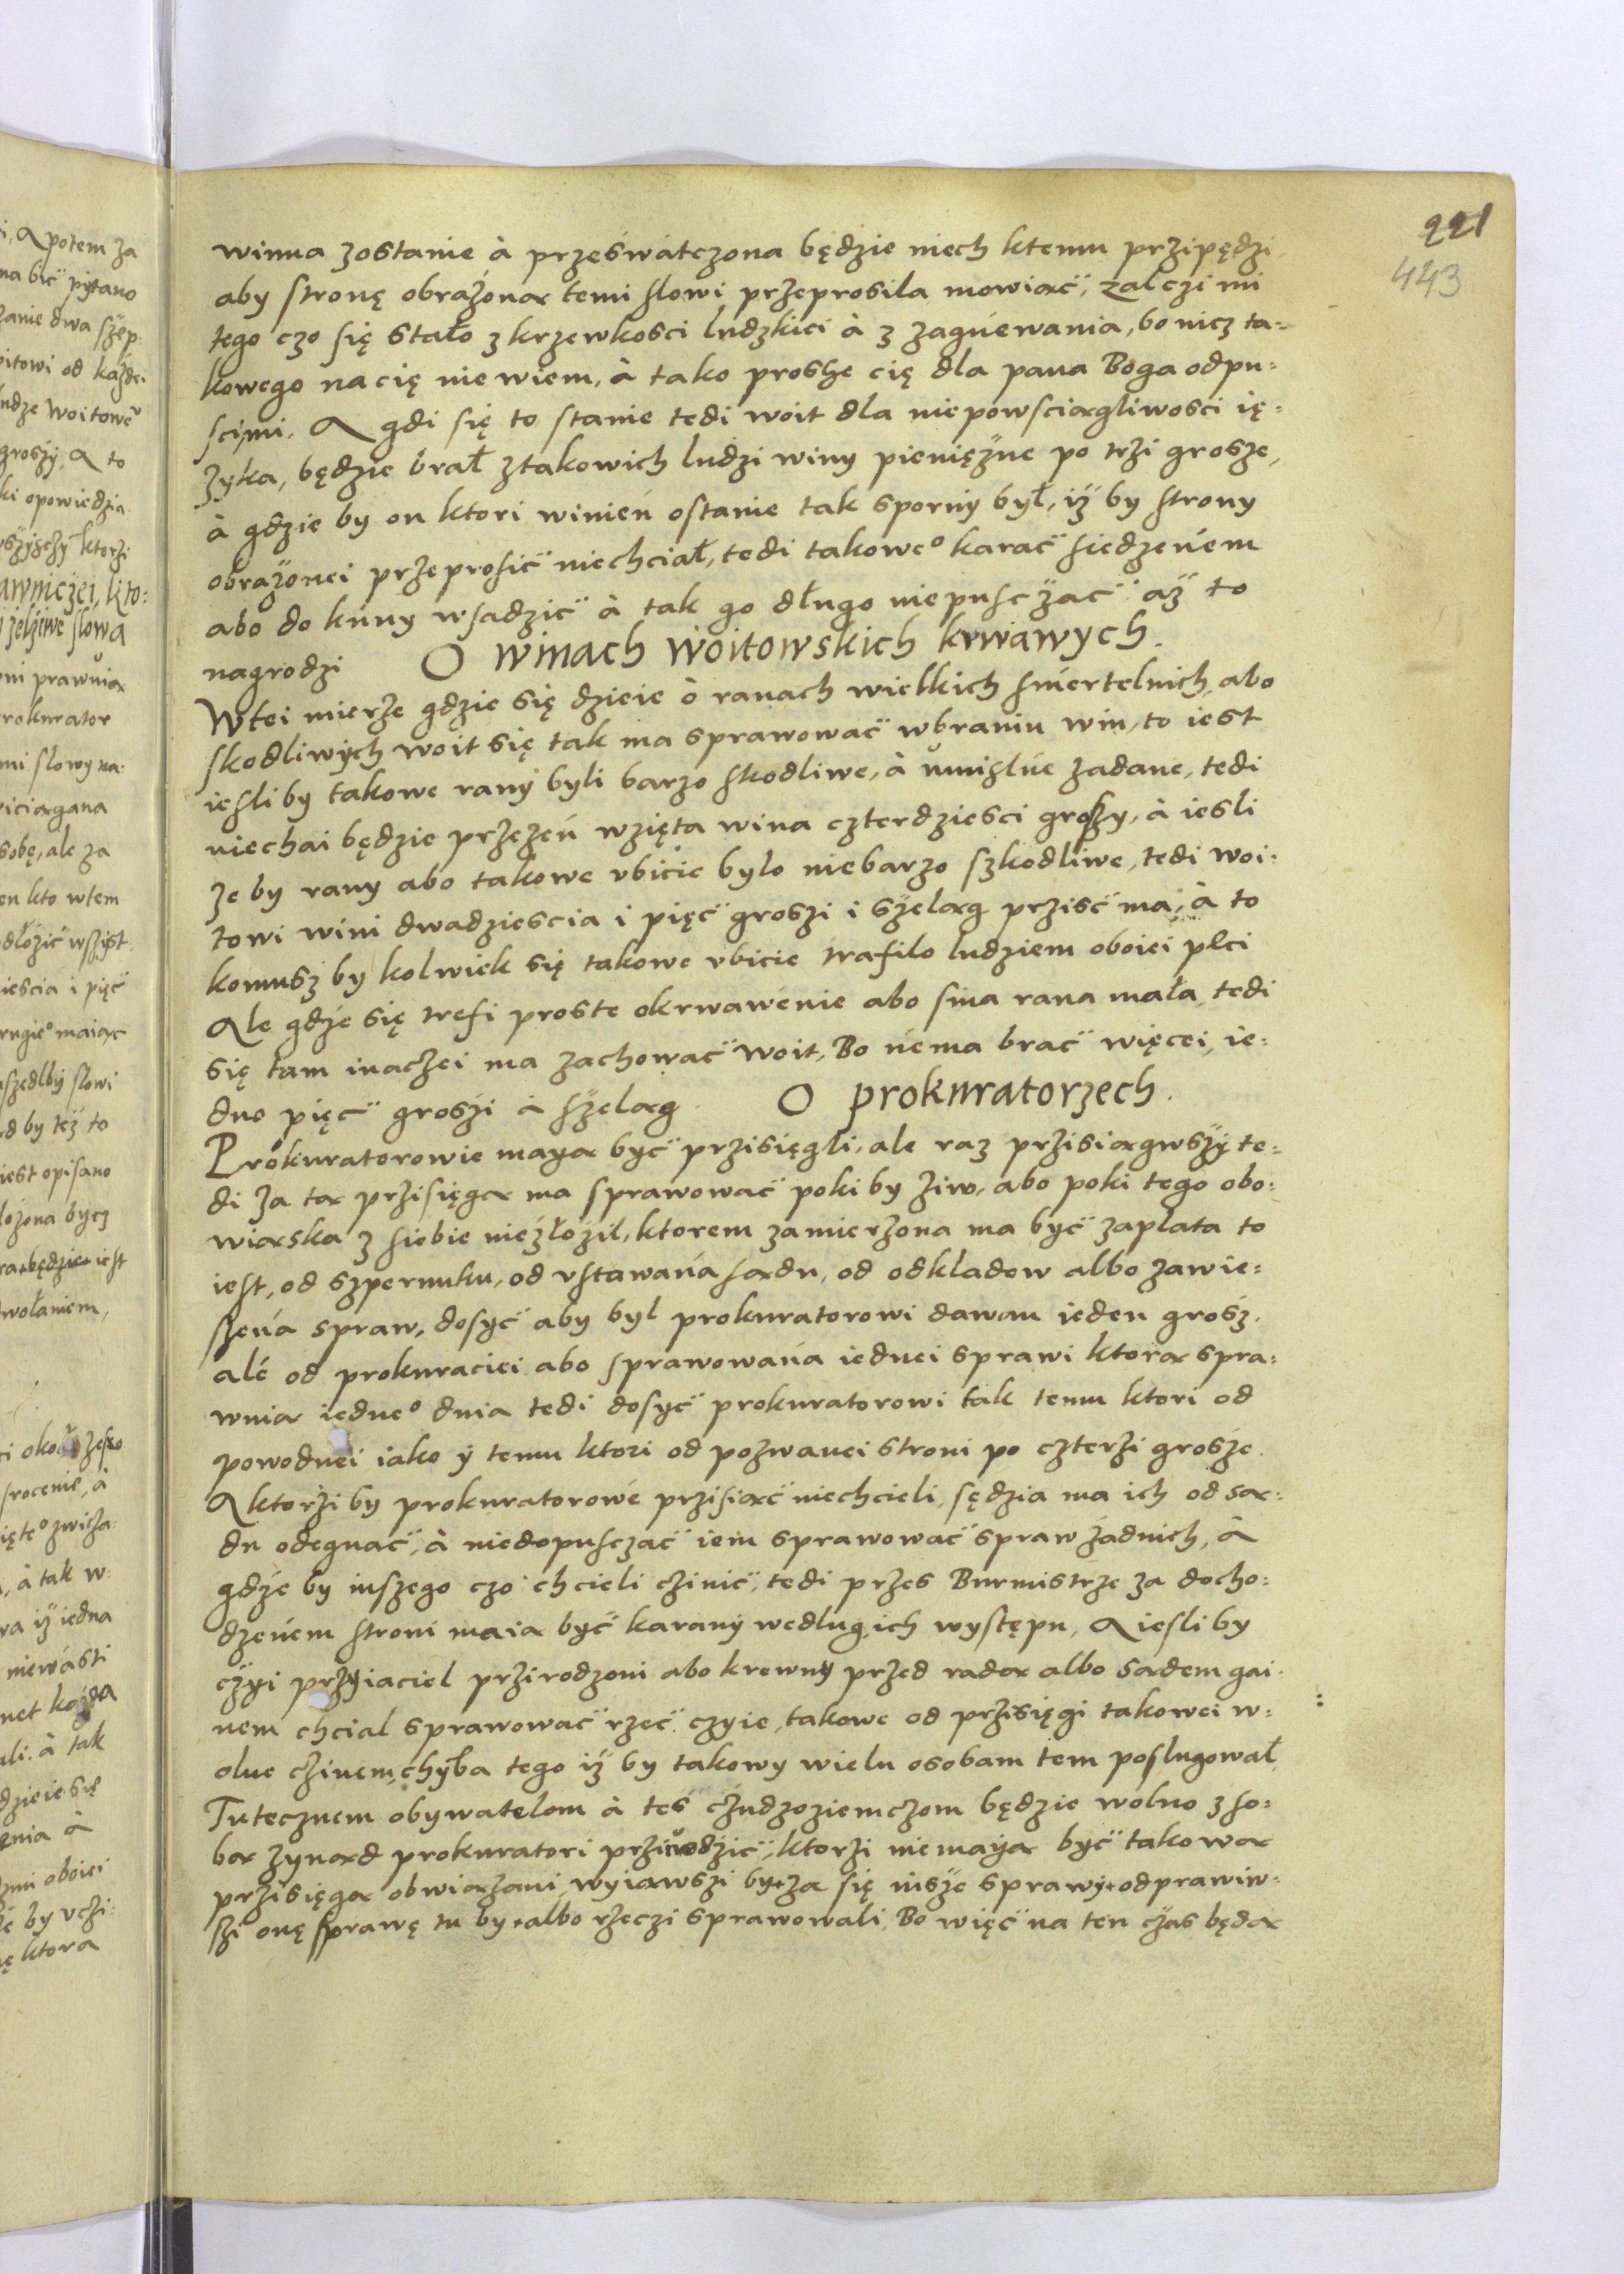 221
443
winna zostanie à przeswátczona będzie niech ktemu przipędzi
aby stronę obrażonaͣ temi slowi przeprosila mowiać, zal czi mi
tego czo się stało z krzewkosci ludzkiei à z zagńewania, bo nicz ta-
kowego na cię nie wiem, à tako proshe cię dla pana Boga odpu=
sci mi. A gdi się to stanie tedi woit dla niepowsciagliwosci ię=
zyka, będzie brał ztakowich ludzi winy pieniężne po trzi grosze,
à gdzie by on ktori winień ostanie tak sporny był, iż by strony
obrażonei przeprosić niechciał, tedi takoweº karać siedzeńem
abo do kuny wsadzić à tak go długo niepusczać aż to
nagrodzi O winach woitowskich krwawych.
Wtei mierze gdzie się dzieie ò ranach wielkich smertelnich abo
skodliwych woit się tak ma sprawować wbraniu win, to iest
iesli by takowe rany byli barzo skodliwe, à umislńe zadane, tedi
niechai będzie przezeń wzięta wina czterdziesci groszy, à iesli
że by rany abo takowe ubicie bylo niebarzo szkodliwe, tedi woi=
towi wini dwadziescia i pięć groszi i szelag przisć ma, à to
komusz by kolwiek się takowe ubicie trafilo ludziem oboiei płci
Ale gdże się trefi proste okrwawenie abo sina rana mała, tedi
się tam inaczei ma zachować woit, Bo ńema brać więcei, ie=
dno pięć groszi à szelag. O prokuratorzech.
Prokuratorowie maya być przisięgli, ale raz przisiagwszy te=
di za ta przisięga ma sprawować poki by ziw, abo poki tego obo=
wiaska z siebie niezłożil, ktorem zamierzona ma być zaplata to
iest, od szpernuku, od vstawańa sadu, od odkladow albo zawie=
szeńa spraw, dosyć aby byl prokuratorowi dawan ieden grosz.
alé od prokuraciei abo sprawowańa iednei sprawi ktora spra=
wnia iedneº dnia tedi dosyć prokuratorowi tak temu ktori od
powodnei iako ÿ temu ktori od pozwanei stroni po czterzi grosze.
A ktorzi by prokuratorowé przisiać niechcieli, sędzia ma ich od sa=
du odegnać, à niedopusczać iem sprawować spraw żadnich, à
gdże by inszego czo chcieli czinić, tedi przes Burmistrze za docho=
dzeńem stroni maia być karany wedlug ich występu, A iesli by
czyi przyiaciel przirodzoni abo krewny przed rada albo Sadem gai=
nem chcial sprawować rzeć czyie, takowe od przisięgi takowei w=
olne czinem, chyba tego iż by takowy wielu osobam tem poslugował.
Tutecznem obywatelom à też czudzoziemczom będzie wolno z so=
ba zynad prokuratori przivodzić, ktorzi nie maya być takowa
przisięga obwiazani, wyiawszi by za się insze sprawy odprawiw=
szi onę sprawę tu by albo rzeczi sprawowali, Bo więć na ten czas będa